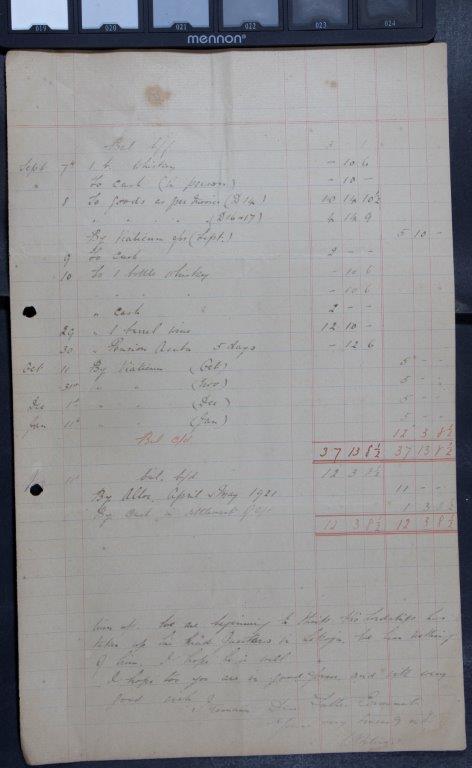 019 020 021 022 023 024
mennon
Bal b/f 3 - 1
Sept 7th 1 b. Whiskey - 10 6
" To cash (in person) - 10 -
8 To goods as per Invoice (D14) 10 14 10½
" " " " (D16+17) 4 14 9
By Viaticum (Sept.) 5 10 -
9 To Cash 2 - -
10 To 1 bottle Whiskey - 10 6
" " " " - 10 6
" Cash " 2 - -
29 " 1 barrel wine 12 10 -
30 " Pension 5 days - 12 6
Oct 11 By Viaticum (Oct) 5 - -
31st " " (Nov) 5 - -
Dec 1st " " (Dec) 5 - -
Jan 11th " " (Jan) 5 - -
Bal c/d 12 3 8½
37 13 8½ 37 13 8½
11 bal. b/d 12 3 8½
By Alloc. April & May 1921 11 - -
By Cash in settlement 1 3 8½
12 3 8½ 12 3 8½
him at. We are beginning to think His Lordship has
taken up his Head Quarters in we hear nothing
of him. I hope he is well
I hope too you are in good form and with every
good wish I remain Dear Father
Yours very sincerely